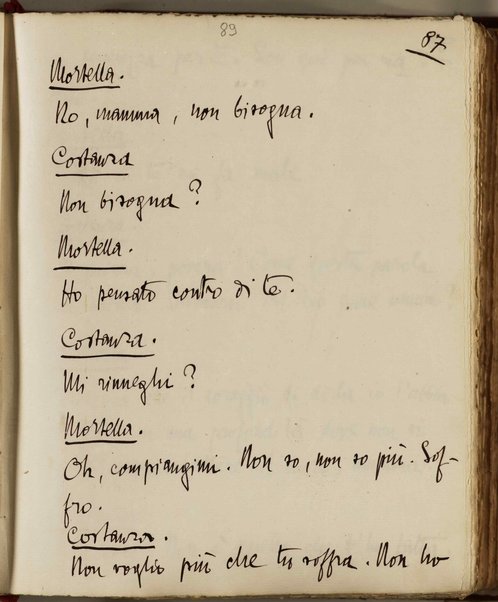 89
87
Mortella.
No, mamma, non bisogna.
Costanza
Non bisogna?
Mortella.
Ho pensato contro di te.
Costanza.
Mi rinneghi?
Mortella.
Oh, compiangimi. Non so, non so più. Sof-
fro.
Costanza.
Non voglio più che tu soffra. Non ho